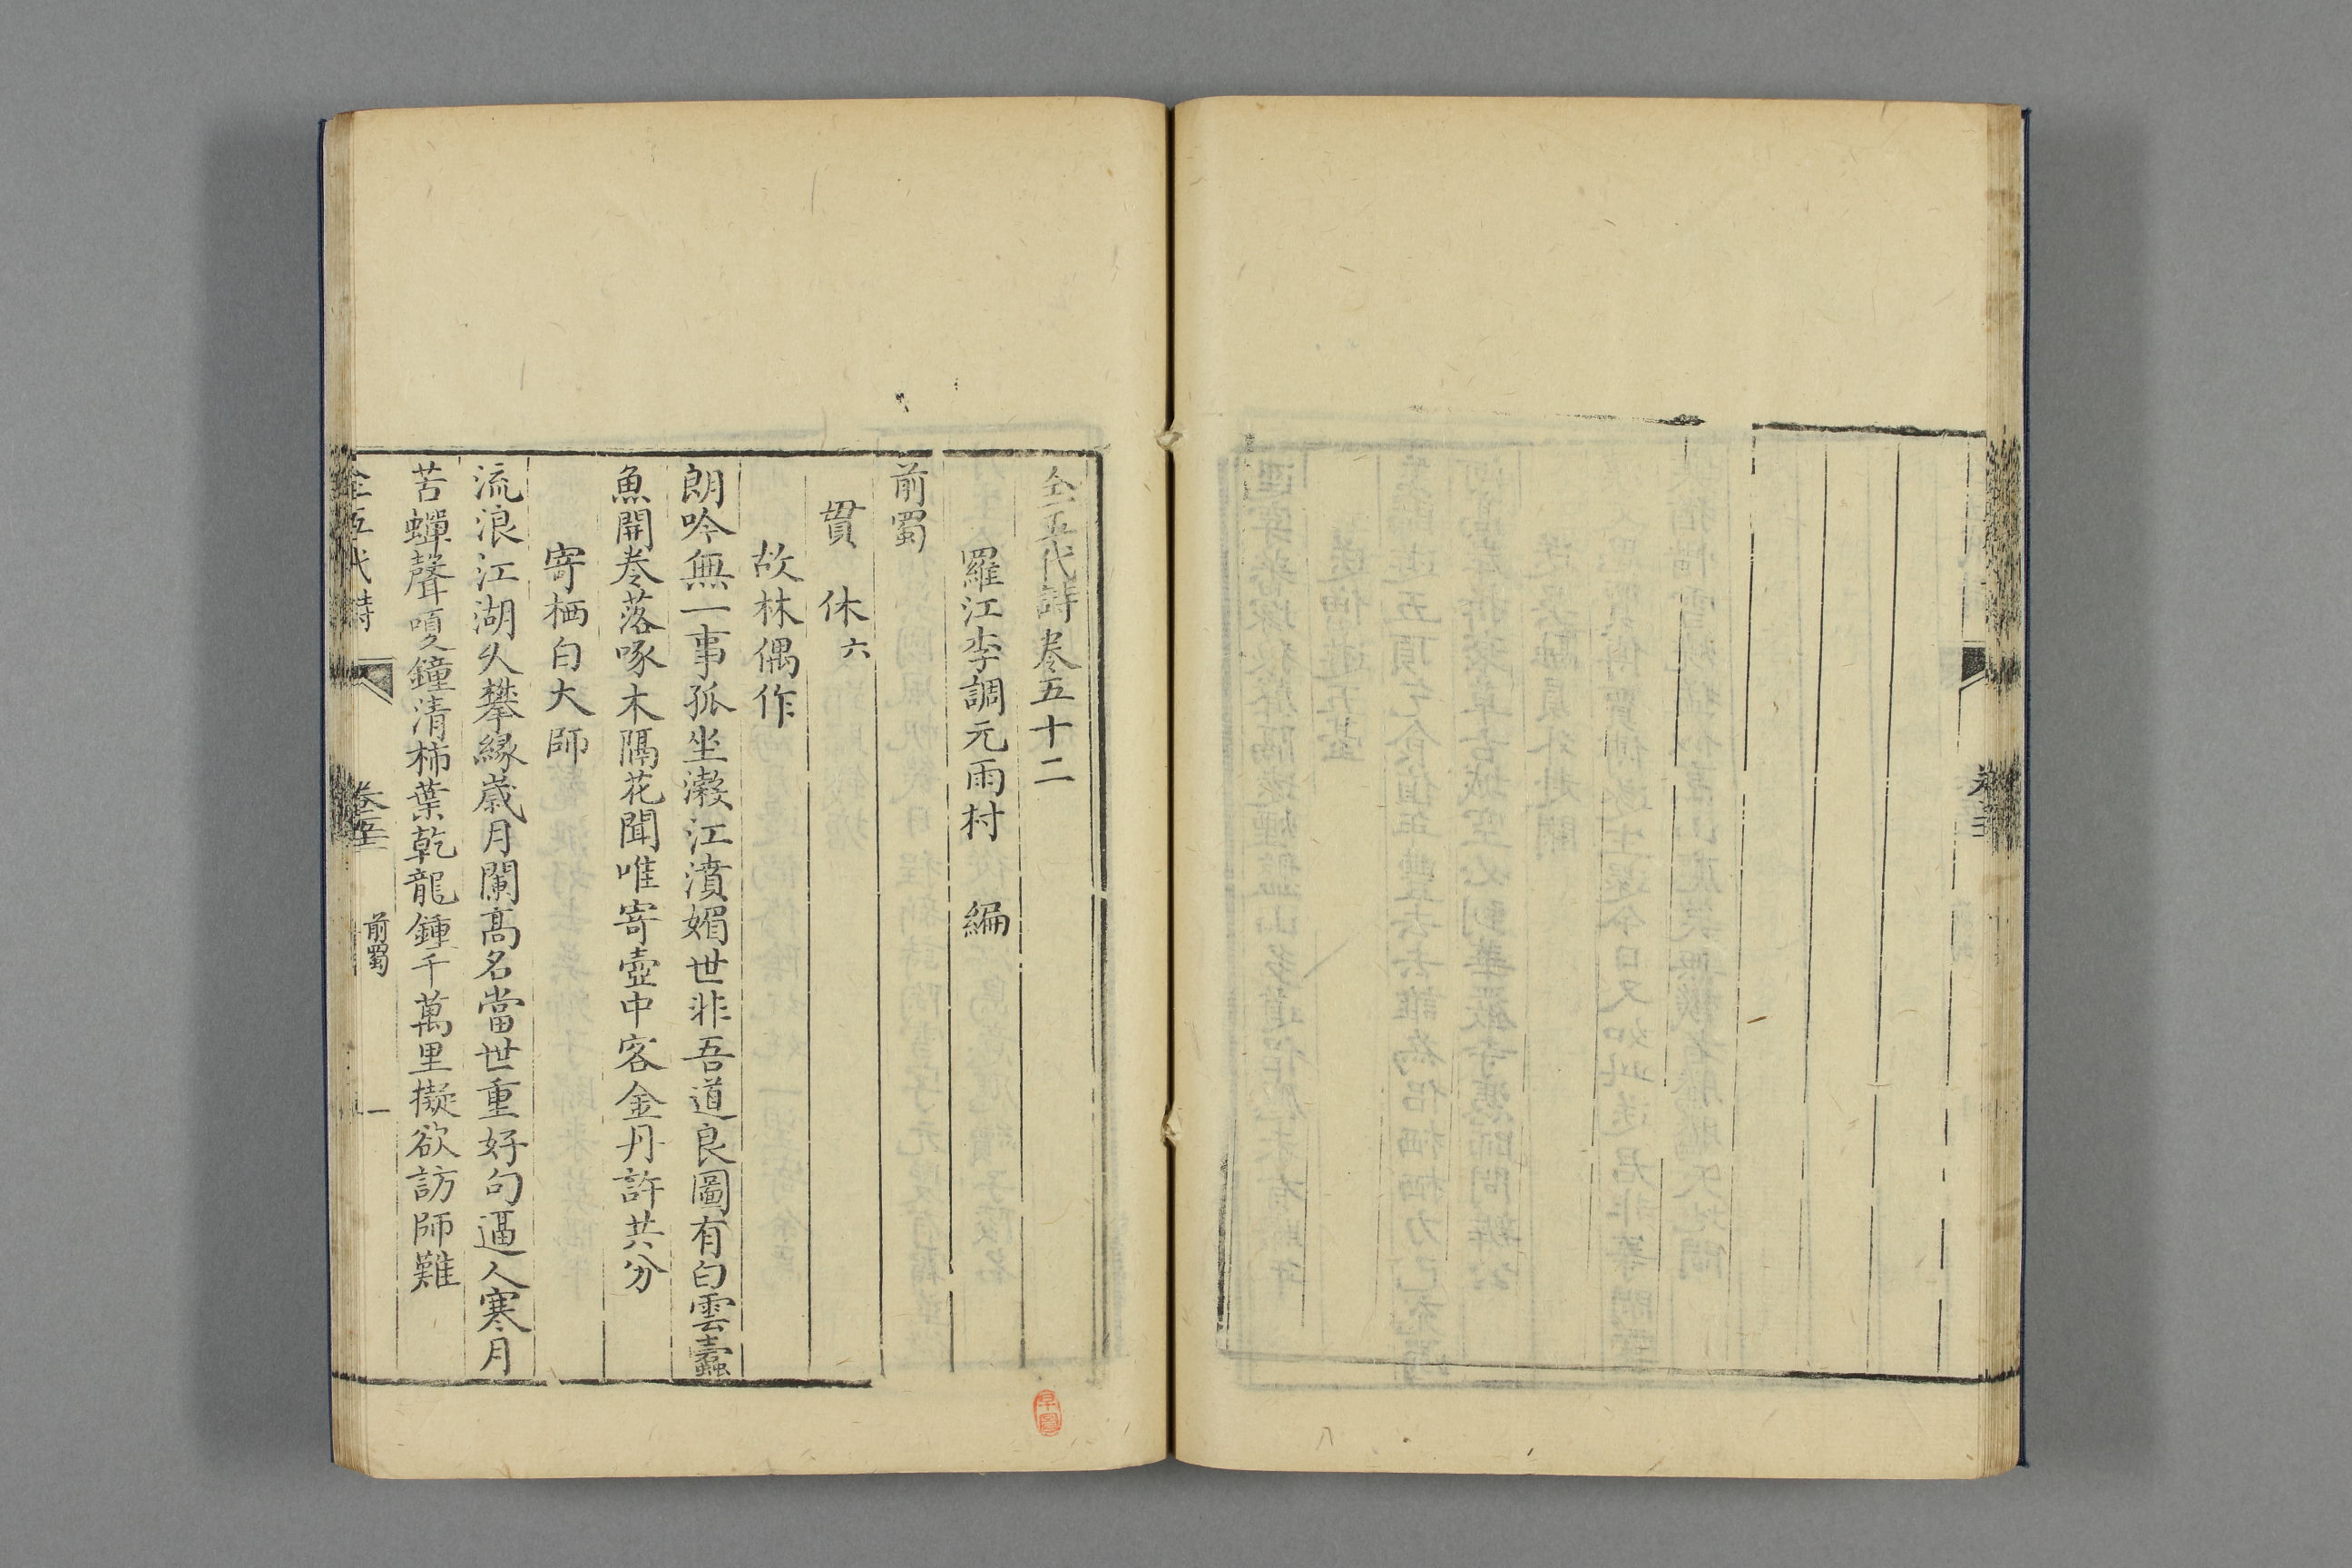 全五代詩卷五十二
羅江李調元雨村 編
前蜀
貫 休 六
故林偶作
朗吟無一事孤坐瀔江濆媚世非吾道良圖有白雲蠹
魚開卷落啄木隔花聞唯寄壺中客金丹許共分
寄栖白大師
流浪江湖久攀緣歲月闌高名當世重好句逼人寒月
苦蟬聲嗄鐘清柿葉乾龍鍾千萬里擬欲訪師難
全五代詩
前蜀
一